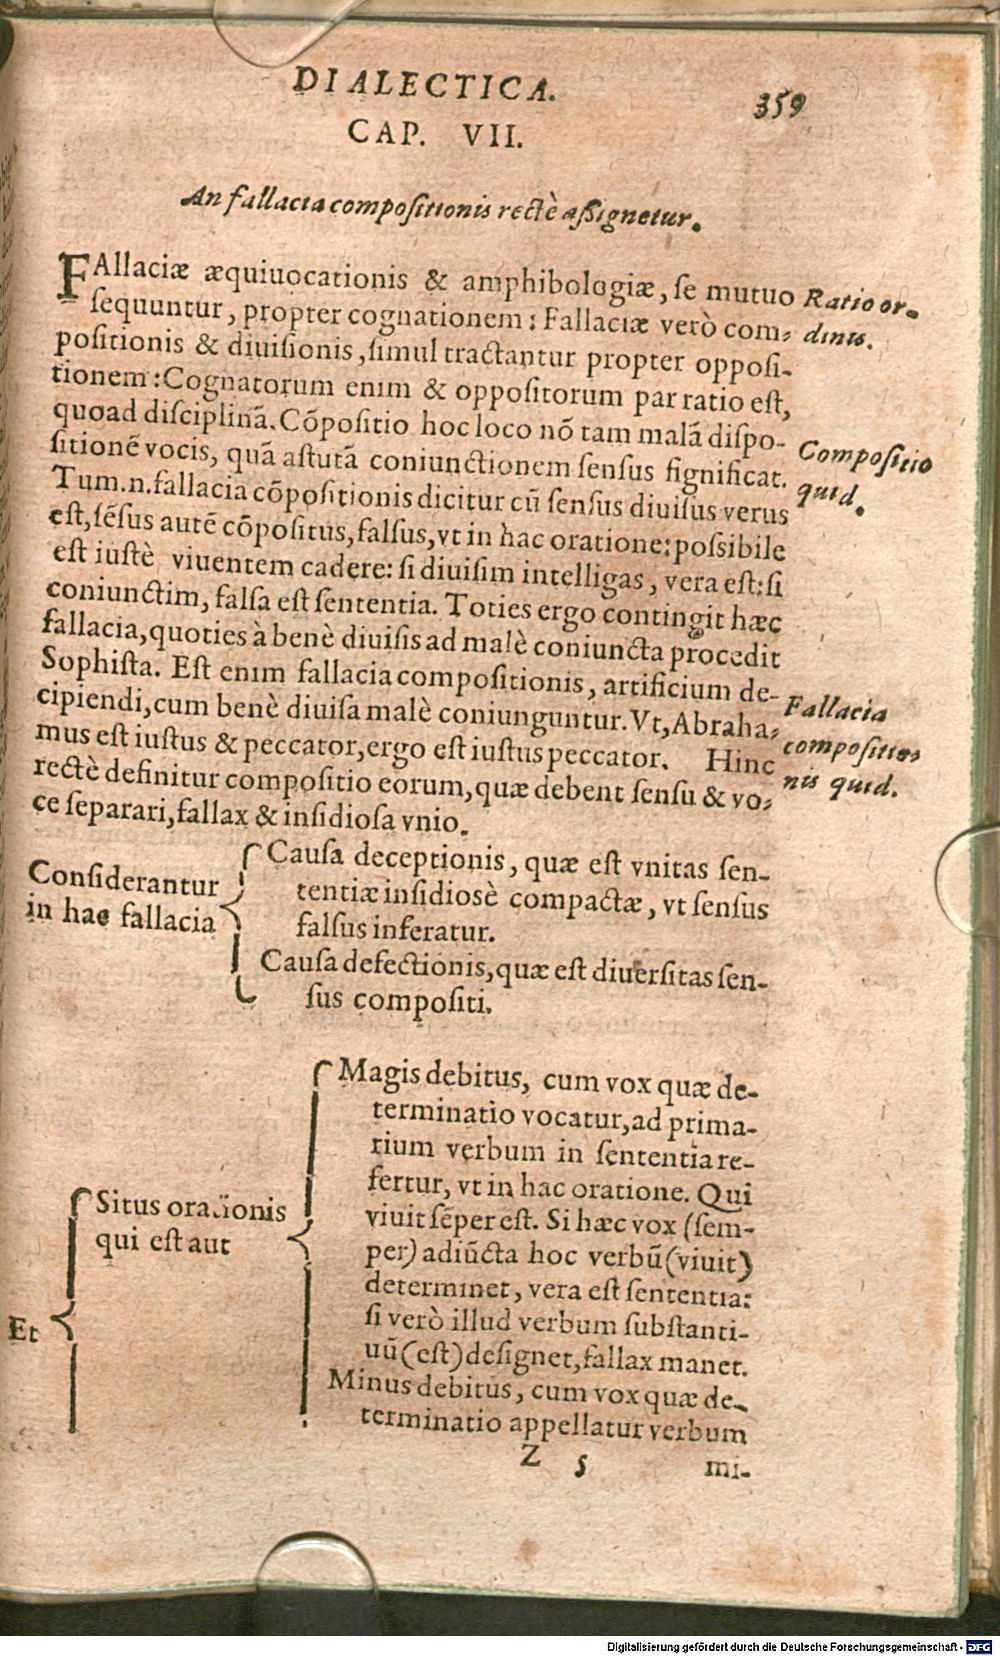 DIALECTICA.
359
CAP. VII.
An fallacia compositionis rectè aßignetur.
FAllaciæ æquiuocationis & amphibologiæ, se mutuo
sequuntur, propter cognationem: Fallaciæ verò com-
positionis & diuisionis, simul tractantur propter opposi-
tionem: Cognatorum enim & oppositorum par ratio est,
quoad disciplinã. Cõpositio hoc loco nõ tam malã dispo-
sitionẽ vocis, quã astutã coniunctionem sensus significat.
Tum.n.fallacia cõpositionis dicitur cũ sensus diuisus verus
est, sẽsus autẽ cõpositus, falsus, vt in hac oratione: possibile
est iustè viuentem cadere: si diuisim intelligas, vera est: si
coniunctim, falsa est sententia. Toties ergo contingit hæc
fallacia, quoties à benè diuisis ad malè coniuncta procedit
Sophista. Est enim fallacia compositionis, artificium de-
cipiendi, cum benè diuisa malè coniunguntur. Vt, Abraha-
mus est iustus & peccator, ergo est iustus peccator. Hinc
rectè definitur compositio eorum, quæ debent sensu & vo-
ce separari, fallax & insidiosa vnio.
Ratio or-
dinis.
Compositio
quid.
Fallacia
compositio-
nis quid.
Considerantur
in hac fallacia
Causa deceptionis, quæ est vnitas sen-
tentiæ insidiosè compactæ, vt sensus
falsus inferatur.
Causa defectionis, quæ est diuersitas sen-
sus compositi.
Et
Situs orationis
qui est aut
Magis debitus, cum vox quæ de-
terminatio vocatur, ad prima-
rium verbum in sententia re-
fertur, vt in hac oratione. Qui
viuit sẽper est. Si hæc vox (sem-
per) adiũcta hoc verbũ (viuit)
determinet, vera est sententia:
si verò illud verbum substanti-
uũ (est) designet, fallax manet.
Minus debitus, cum vox quæ de-
terminatio appellatur verbum
Z 5
mi-
Digitalisierung gefördert durch die Deutsche Forschungsgemeinschaft - DFG